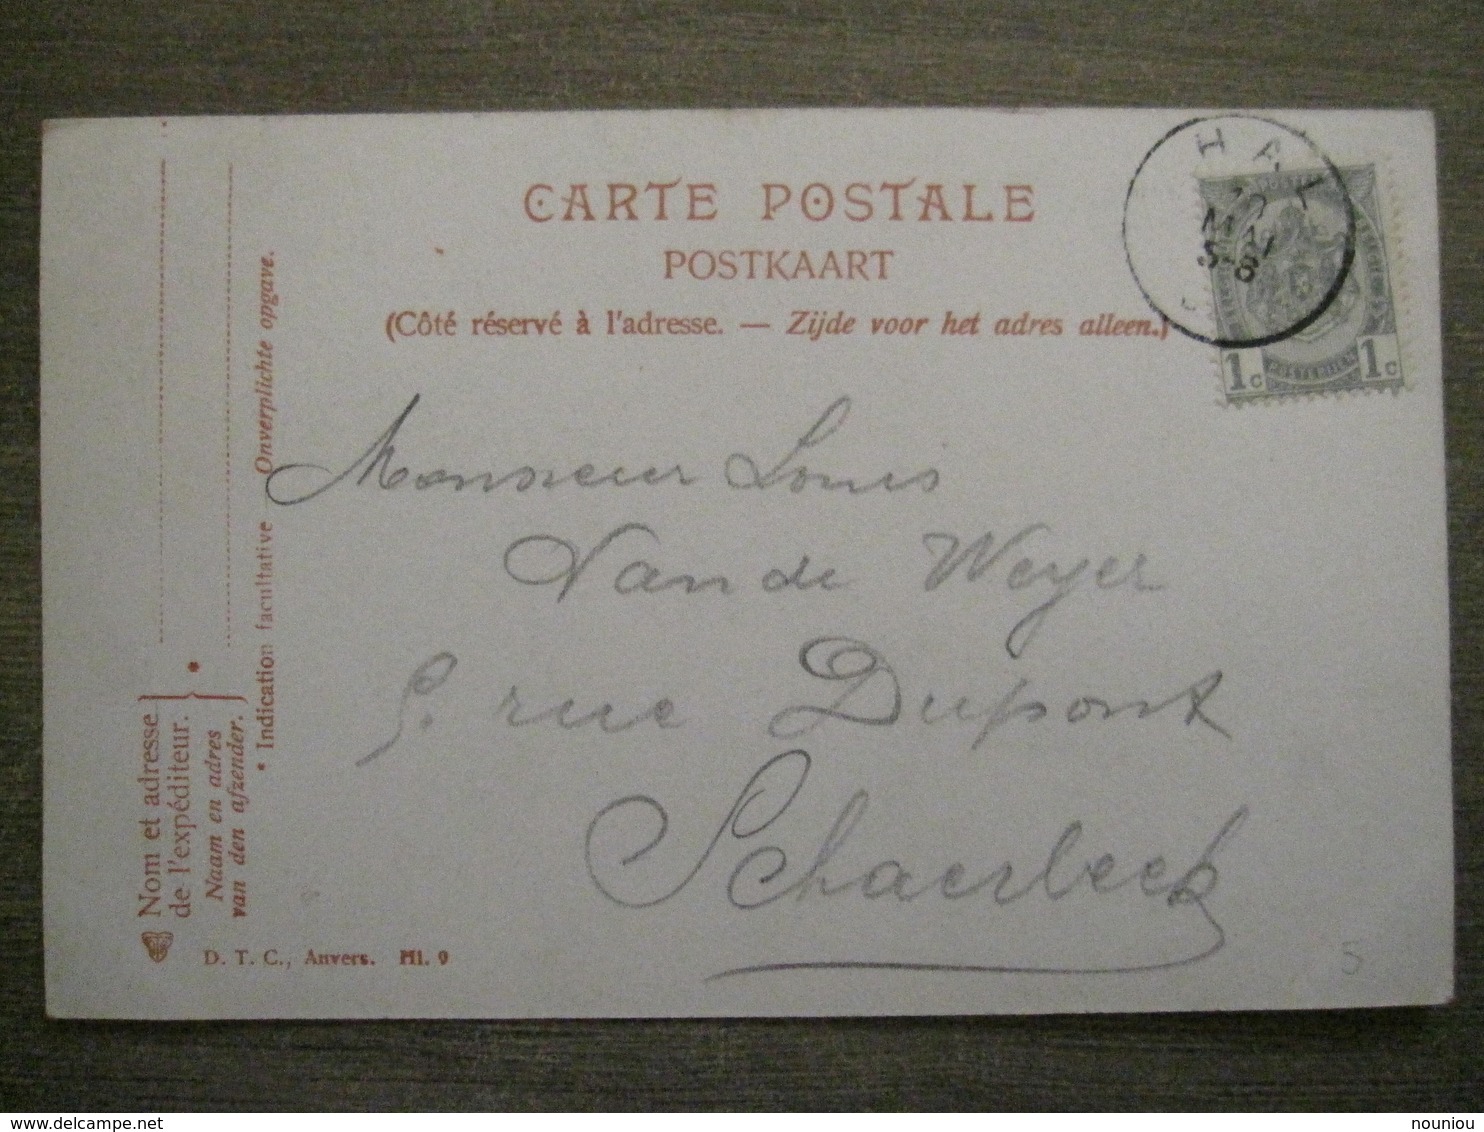 CARTE POSTALE
POSTKAART
(Côté réservé à l'adresse. — Zijde voor het adres alleen.)
HAL
MAI
5-6
1c POSTERIJEN 1c
Monsieur Louis
Van de Weyer
rue Dupont
Schaerbeek
Nom et adresse
de l'expéditeur.
Naam en adres
van den afzender.
*
* Indication facultative Onverplichte opgave.
D. T. C., Anvers. Hl. 9
5
delcampe.net
nouniou